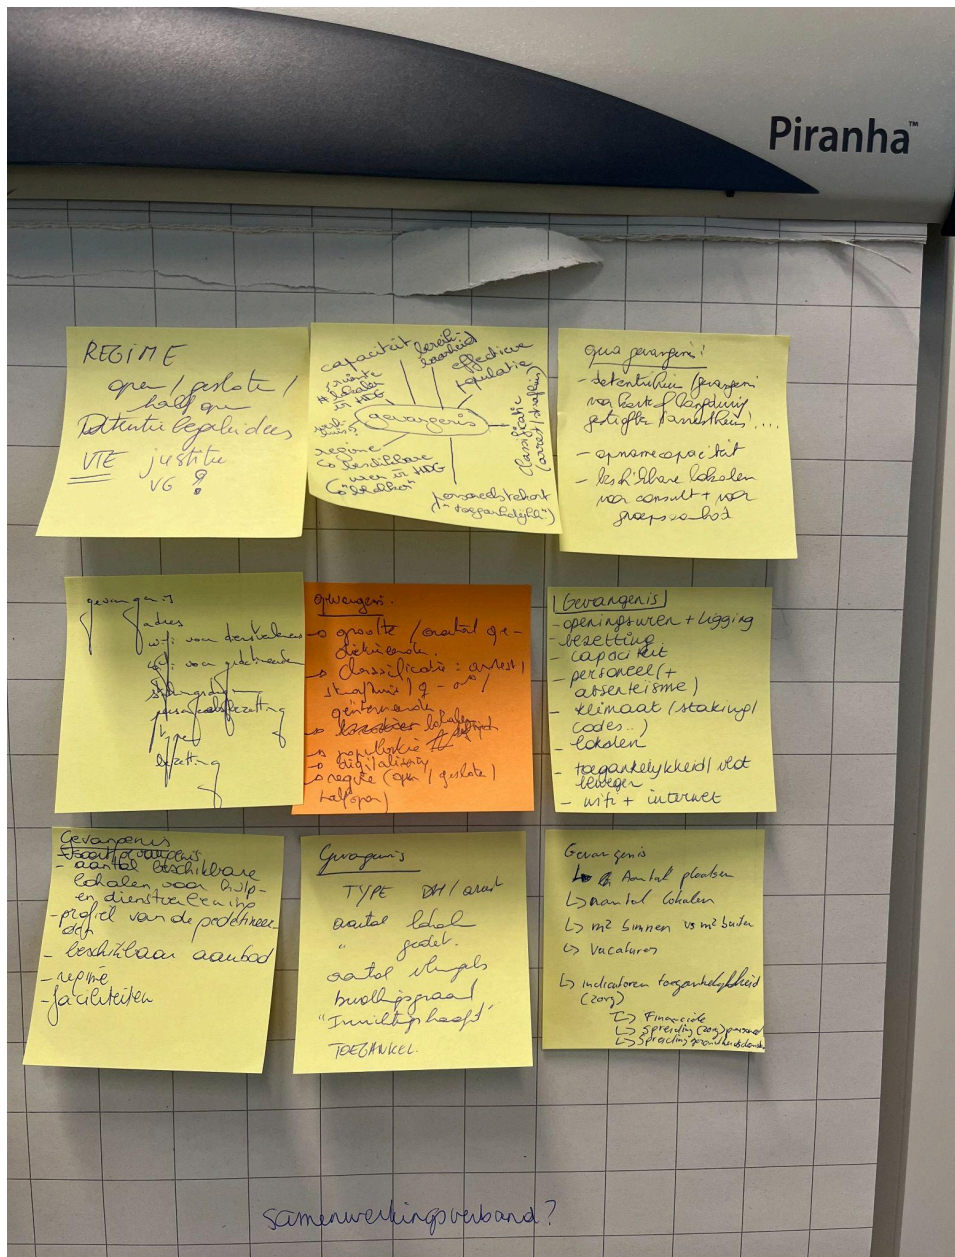 Piranha™
REGIME
open / gesloten /
half open
VTE justitie
VG ?
capaciteit
bereikbaarheid
effectieve
populatie
# lokalen
in HDG
gevangenis
classificatie
(arrest / strafhuis)
regime
beschikbare
uren in HDG
personeelstekort
("toegankelijkh")
qua gevangenis:
- detentiehuis / gevangenis
voor korte of langdurig
gestraften / arresthuis / ....
- opnamecapaciteit
- beschikbare lokalen
voor consult + voor
groepsaanbod
gevangenis
adres
wifi voor
wifi voor gedetineerden
personeelsbezetting
type
bezetting
gevangenis.
→ grootte / aantal ge-
detineerden.
→ classificatie: arrest /
strafhuis /
geïnterneerde
→ lokalen
→ populatie
→ digitalisering
→ regime (open / gesloten /
halfopen)
Gevangenis
- openingsuren + ligging
- bezetting
- capaciteit
- personeel (+
absenteïsme)
- klimaat (staking /
codes..)
- lokalen
- toegankelijkheid / vlot
bewegen
- wifi + internet
Gevangenis
- aantal beschikbare
lokalen voor hulp-
en dienstverlening
- profiel van de gedetineer-
den
- beschikbaar aanbod
- regime
- faciliteiten
Gevangenis
TYPE DH / arrest
aantal lokal
" gedet.
aantal vleugels
bevolkingsgraad
"Inrichtingshoofd"
TOEGANKEL.
Gevangenis
↳ Aantal plaatsen
↳ aantal lokalen
↳ m² binnen vs m² buiten
↳ vacatures
↳ indicatoren toegankelijkheid
(zorg)
↳ Financiële
↳ Spreiding (zorg)personeel
↳ Spreiding gezondheidsdiensten
samenwerkingsverband?